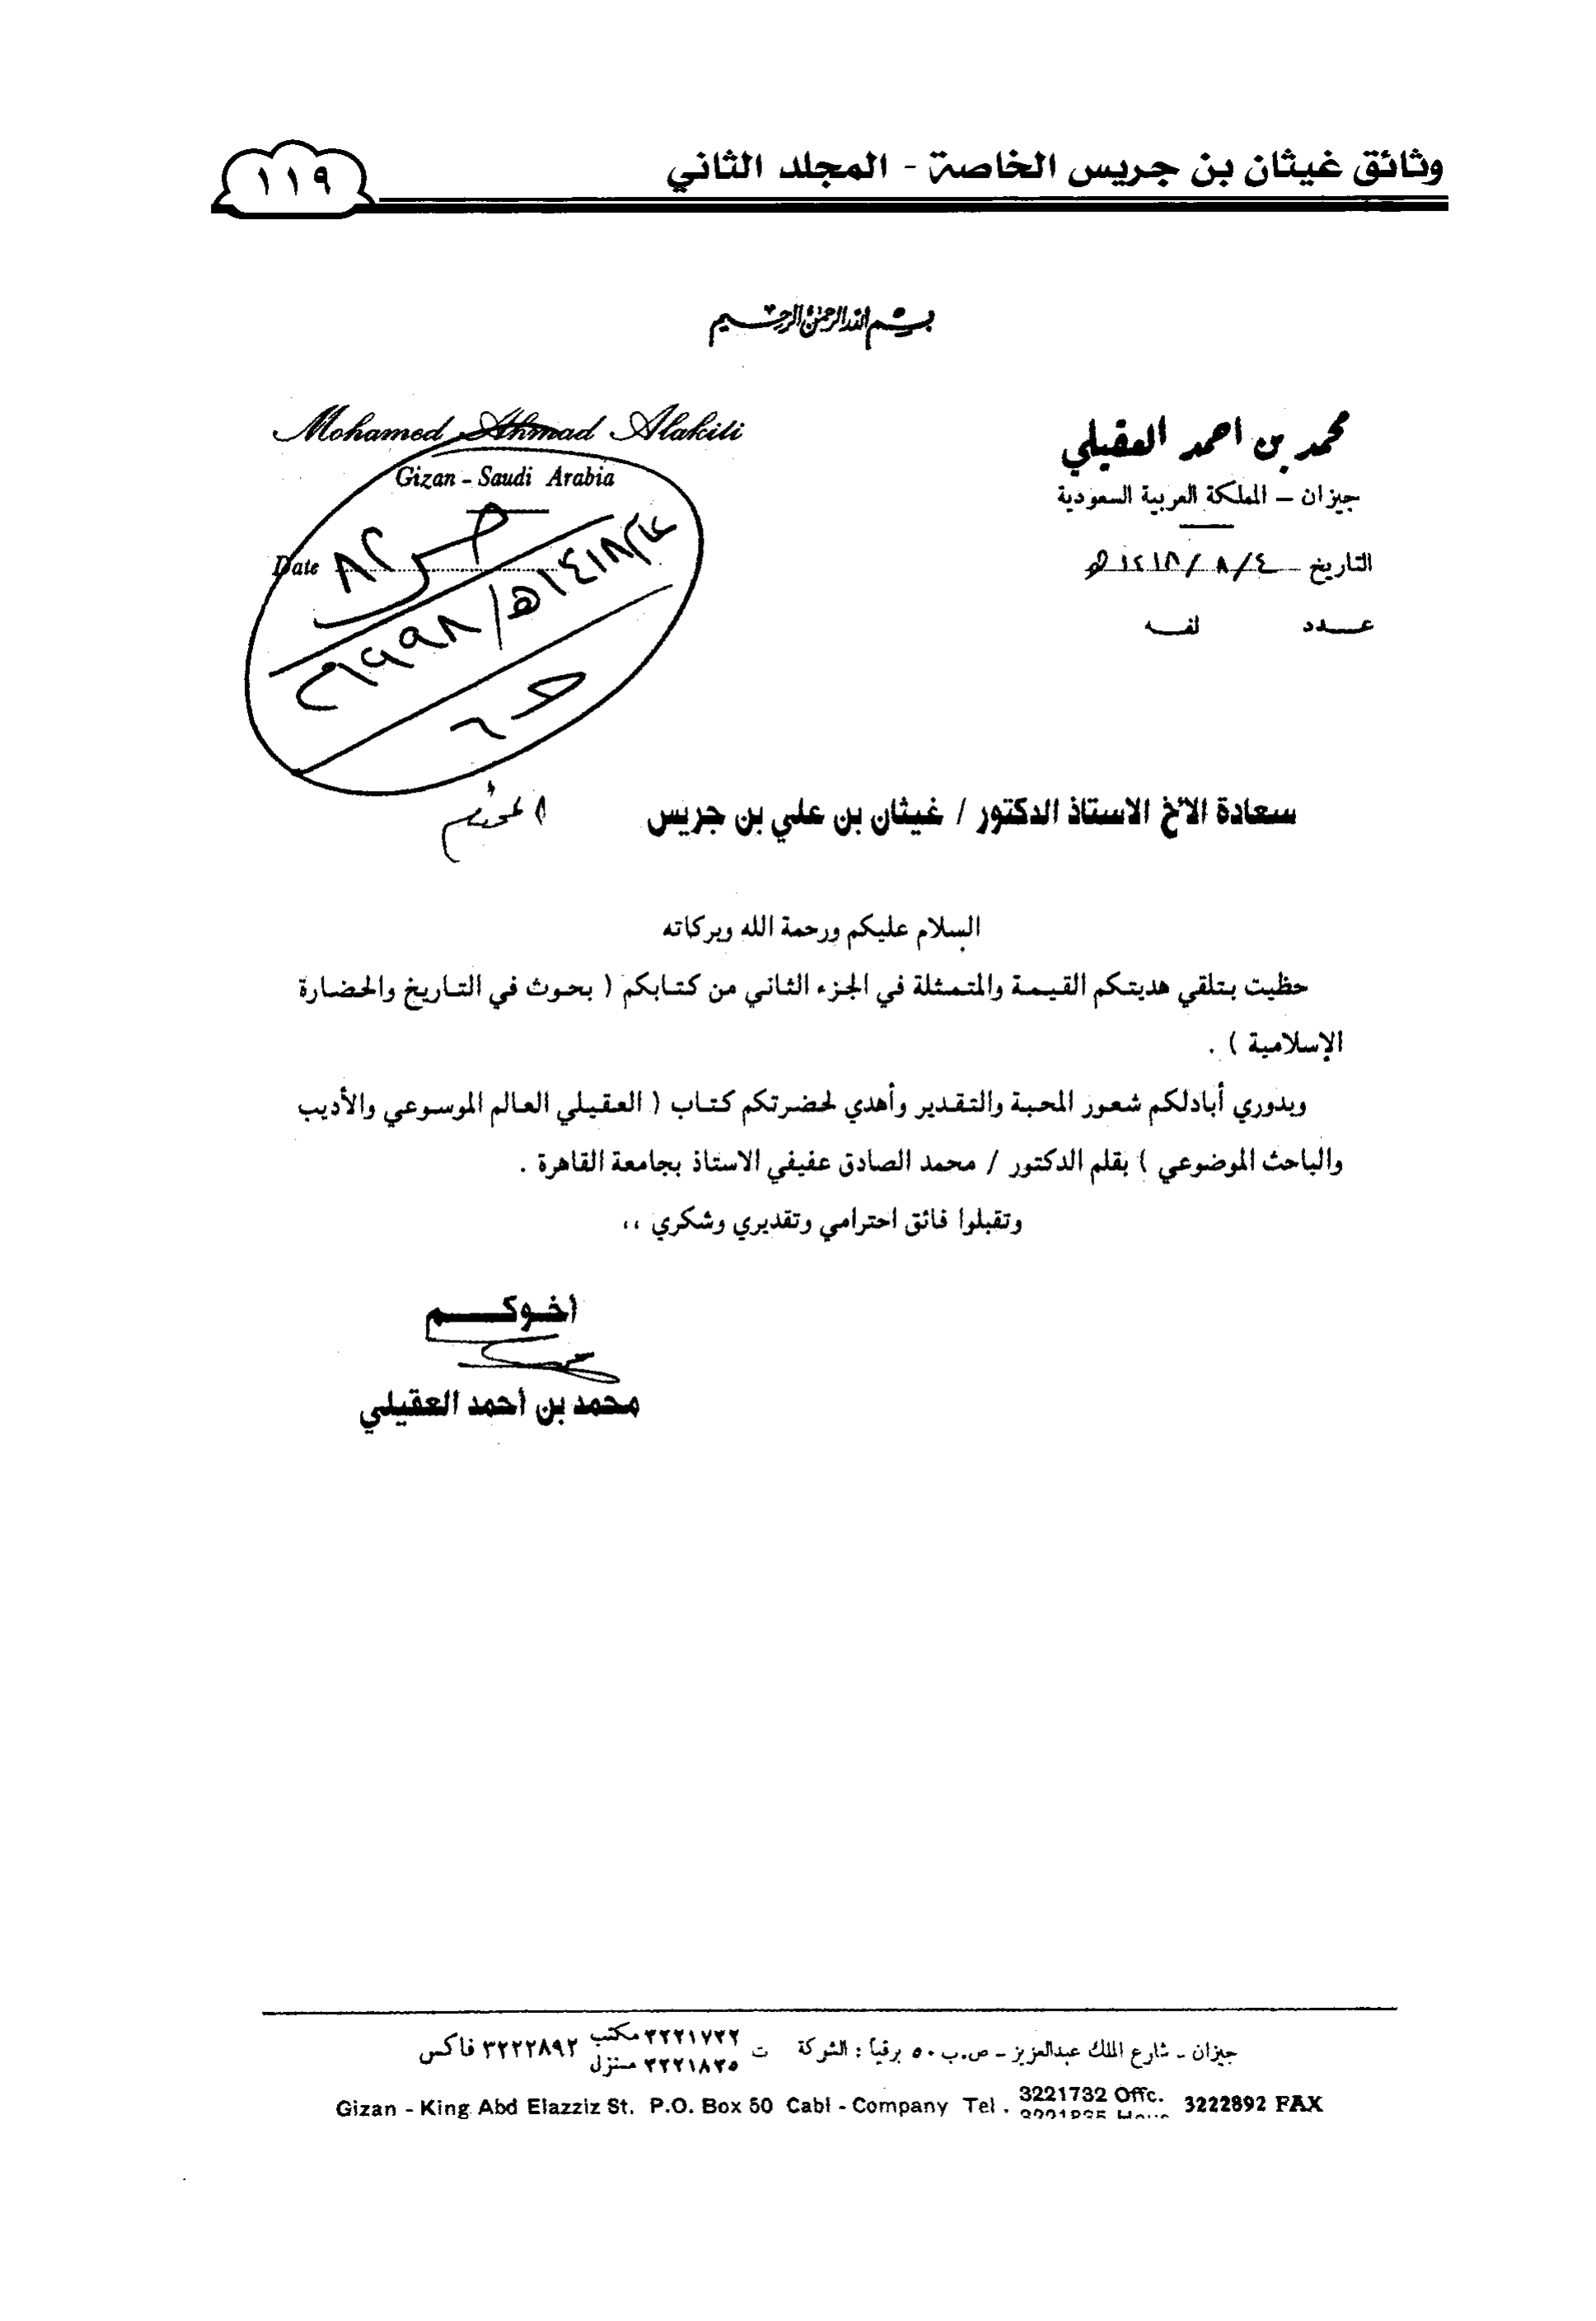 وثائق غيثان بن جريس الخاصة - المجلد الثاني
١١٩
بسم الله الرحمن الرحيم
محمد بن احمد العقيلي
جيزان – المملكة العربية السعودية
التاريخ ٤/٨/١٤١٨ هـ
عـــدد لفـــه
Mohamed Ahmad Alakili
Gizan - Saudi Arabia
Date
ص ٨٢
١٤١٨هـ/١٩٩٨م
سعادة الأخ الاستاذ الدكتور / غيثان بن علي بن جريس المحترم
السلام عليكم ورحمة الله وبركاته
حظيت بتلقي هديتكم القيمة والمتمثلة في الجزء الثاني من كتابكم ( بحوث في التاريخ والحضارة
الإسلامية ) .
وبدوري أبادلكم شعور المحبة والتقدير وأهدي لحضرتكم كتاب ( العقيلي العالم الموسوعي والأديب
والباحث الموضوعي ) بقلم الدكتور / محمد الصادق عفيفي الاستاذ بجامعة القاهرة .
وتقبلوا فائق احترامي وتقديري وشكري ،،
أخوكـــــم
محمد بن أحمد العقيلي
جيزان - شارع الملك عبدالعزيز - ص.ب ٥٠ برقياً : الشركة ت ٣٢٢١٧٣٢ مكتب ٣٢٢٢٨٩٢ فاكس
٣٢٢١٨٣٥ منزل
Gizan - King Abd Elazziz St. P.O. Box 50 Cabl - Company Tel . 3221732 Offc. 3222892 FAX